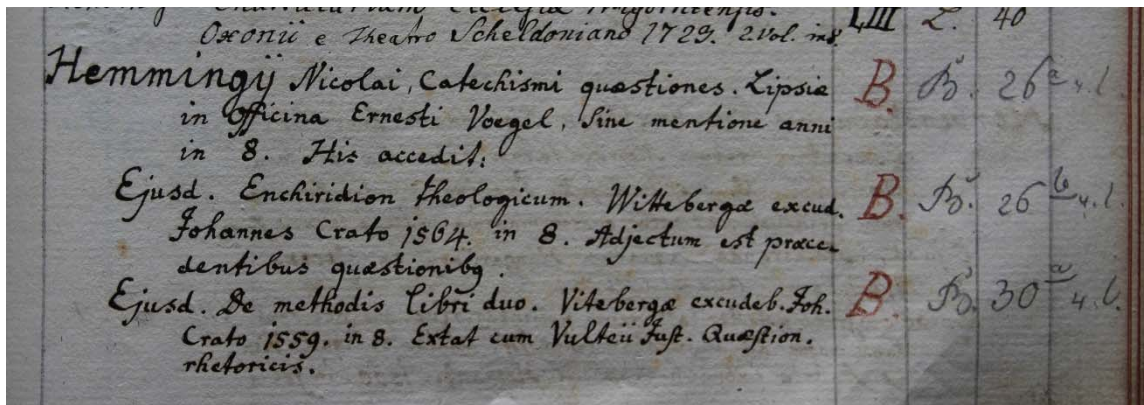 Chartularium Ecclesiæ Wigorniensis.
Oxonii e Theatro Scheldoniano 1723. 2 Vol. in 8. LIII Z. 40
Hemmingij Nicolai, Catechismi quæstiones. Lipsiæ B. 26 a
in Officina Ernesti Voegel, Sine mentione anni
in 8. His accedit:
Ejusd. Enchiridion Theologicum. Wittebergæ excud. B. 26 b
Johannes Crato 1564. in 8. Adjectum est præce-
dentibus quæstionibq.
Ejusd. De methodis libri duo. Vitebergæ excudeb. Joh. B. 30 a
Crato 1559. in 8. Extat cum Vulteii Just. Quæstion.
rhetoricis.